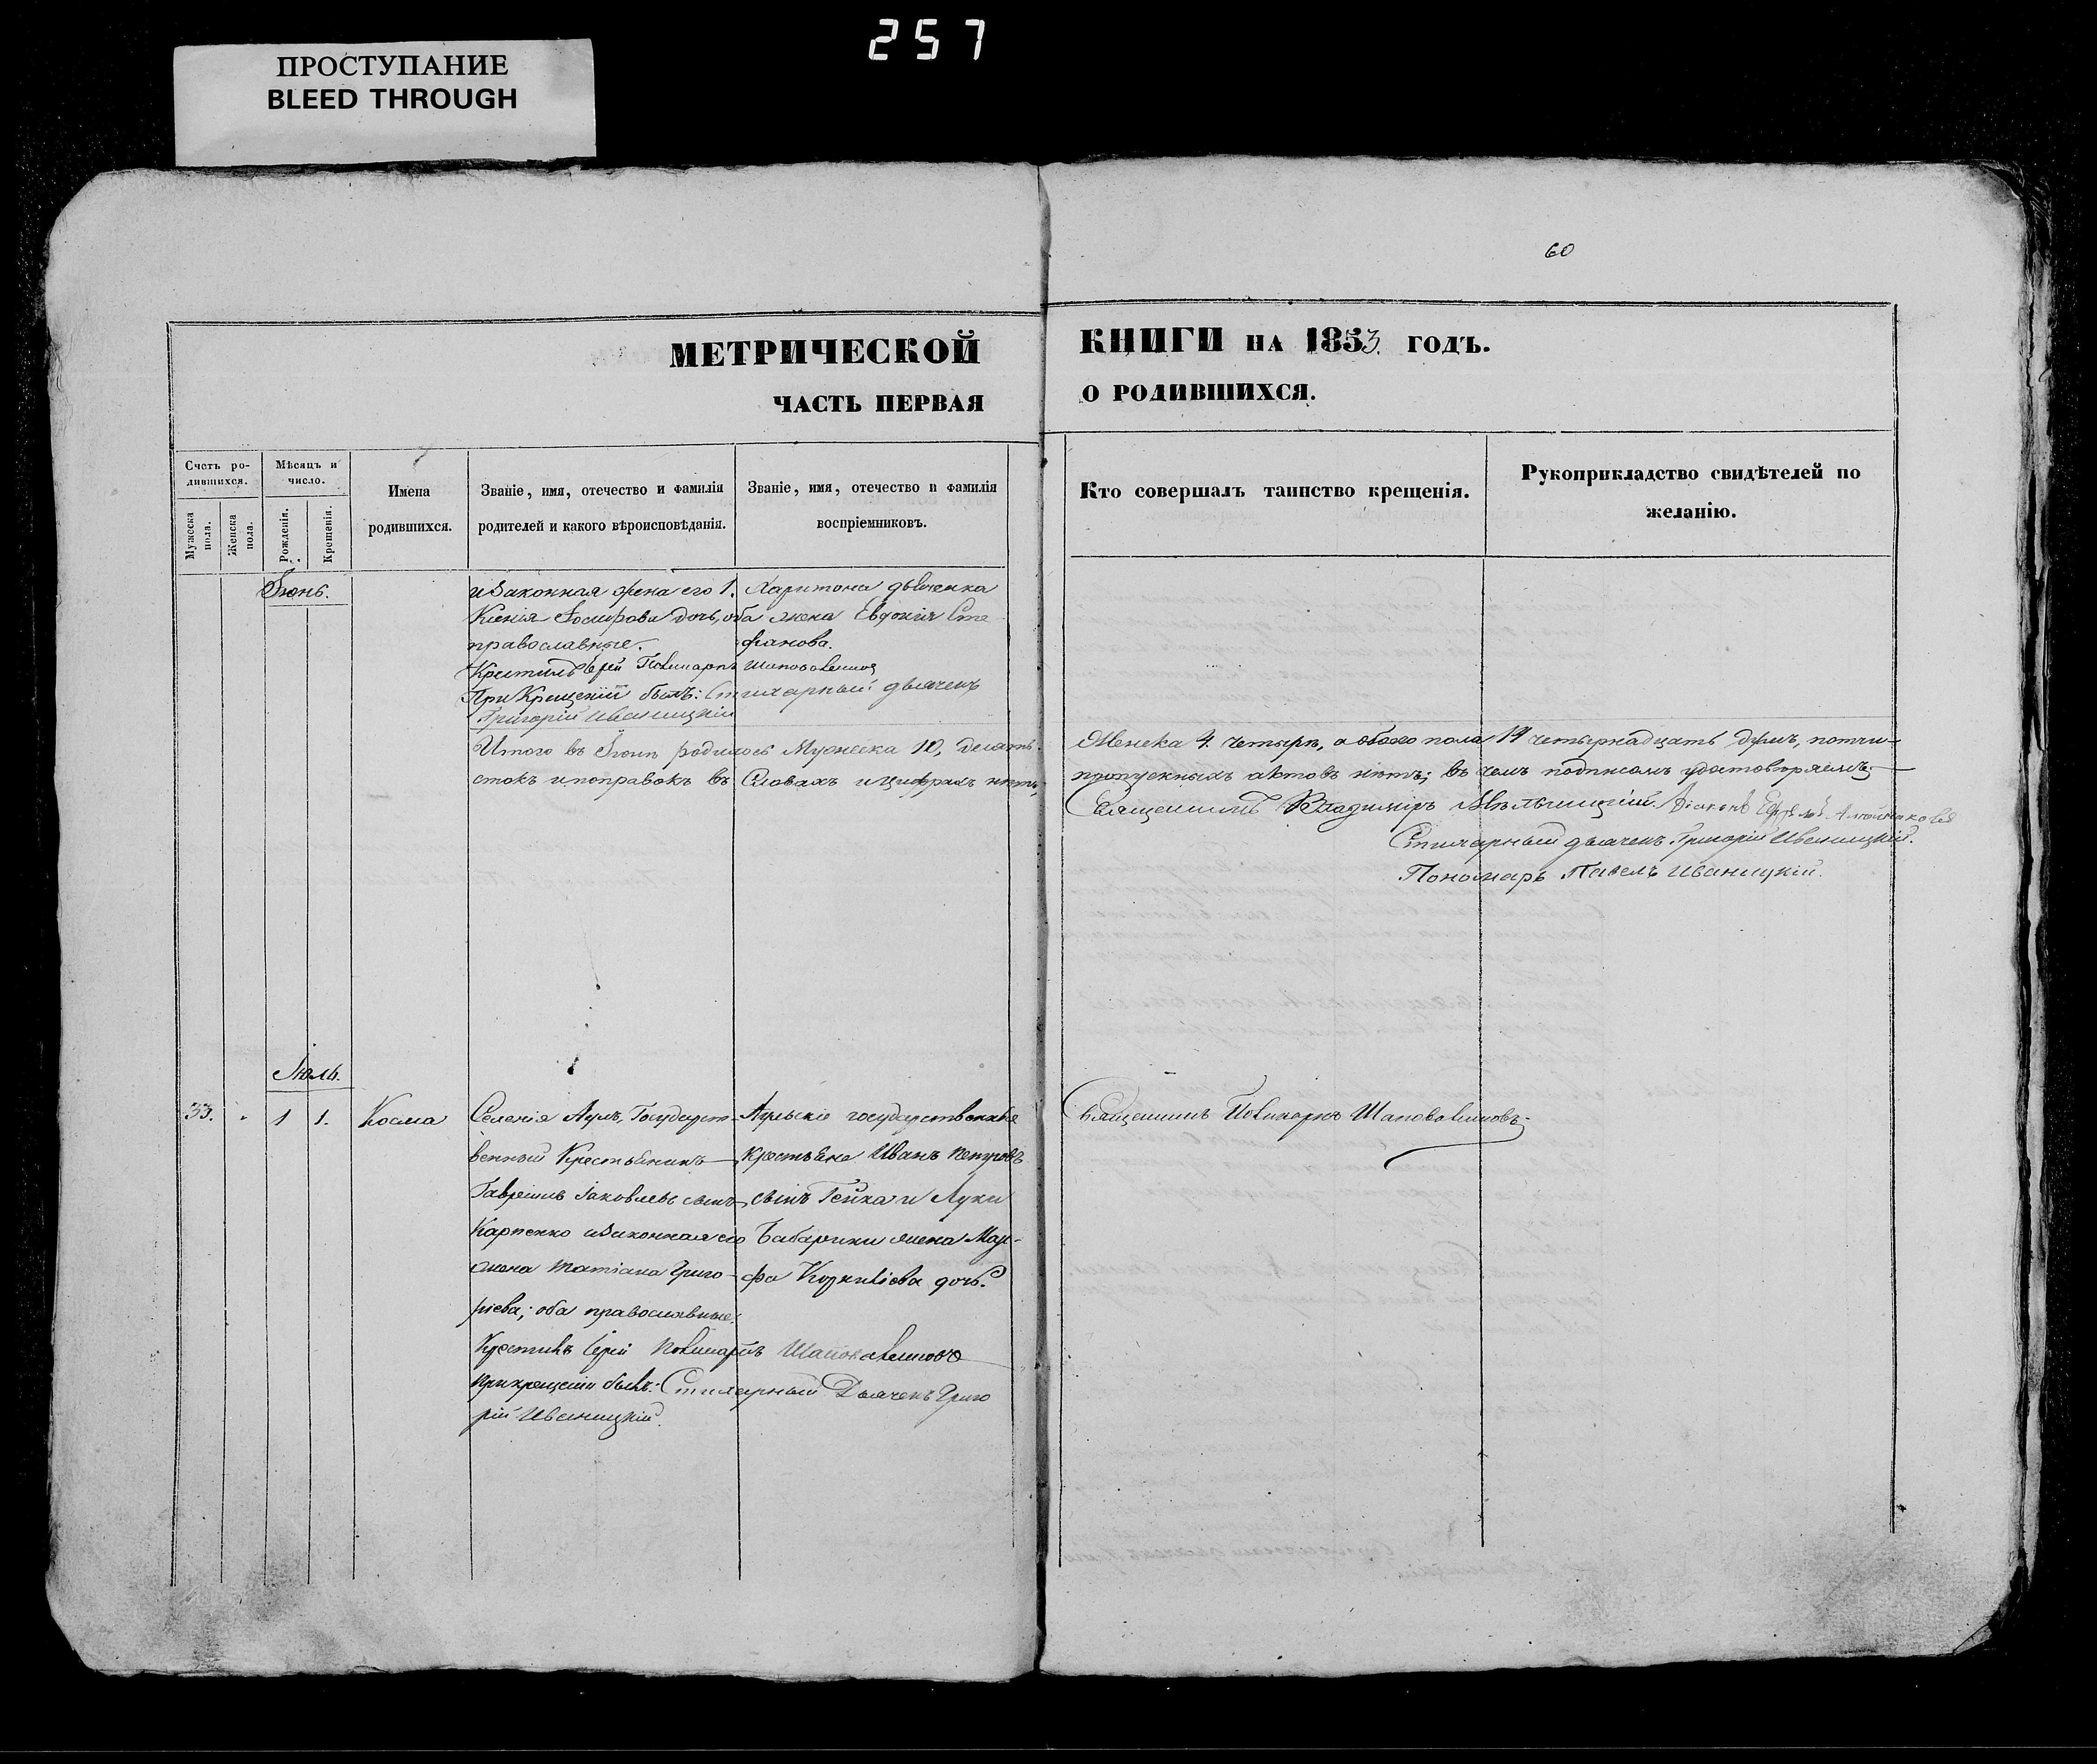 257
ПРОСТУПАНИЕ
BLEED THROUGH
60
МЕТРИЧЕСКОЙ КНИГИ НА 1853. ГОДЪ.
ЧАСТЬ ПЕРВАЯ О РОДИВШИХСЯ.
Счетъ ро-
дившихся.
Мужеска пола.
Женска пола.
Мѣсяцъ и
число.
Рожденія.
Крещенія.
Имена
родившихся.
Званіе, имя, отечество и фамилія
родителей и какого вѣроисповѣданія.
Званіе, имя, отечество и фамилія
воспріемниковъ.
Кто совершалъ таинство крещенія.
Рукоприкладство свидѣтелей по
желанію.
Іюнь.
и Законная жена его
Ксенія Іосифова дочь, оба
православные.
Харитона
жена Евдокія Сте
фанова.
Крестилъ Іерей Поликарпъ Шаповаленко
При Крещеніи былъ: Стихарный дьячекъ
Григорій Иваницкій
Итого въ Іюнѣ родилось Мужеска 10, десять. Женска 4. четыре, а обоего пола 14 четырнадцать душъ, почи-
стокъ и поправокъ въ Словахъ и Цифрахъ нѣтъ, пропускныхъ актовъ нѣтъ; въ чемъ подписомъ удостовѣряемъ
Священникъ Владиміръ Діаконъ
Стихарный дьячекъ Григорій Иваницкій.
Пономарь Павелъ Иваницкій.
Іюль.
33. 1 1. Косма
Селенія Аулъ, Государст-
венный Крестьянинъ
Гавріилъ Іаковлевъ сынъ
Карпенко и Законная его
жена Татіана Григо-
ріева; оба православные.
Аульскіе государственные
крестьяне Иванъ Петровъ
сынъ Гейка и Луки
Бабарики жена Мар-
фа Корниліева дочь.
Крестилъ Іерей Поликарпъ Шаповаленковъ
При крещеніи былъ: Стихарный Дьячекъ Григо
рій Иваницкій.
Священникъ Поликарпъ Шаповаленковъ